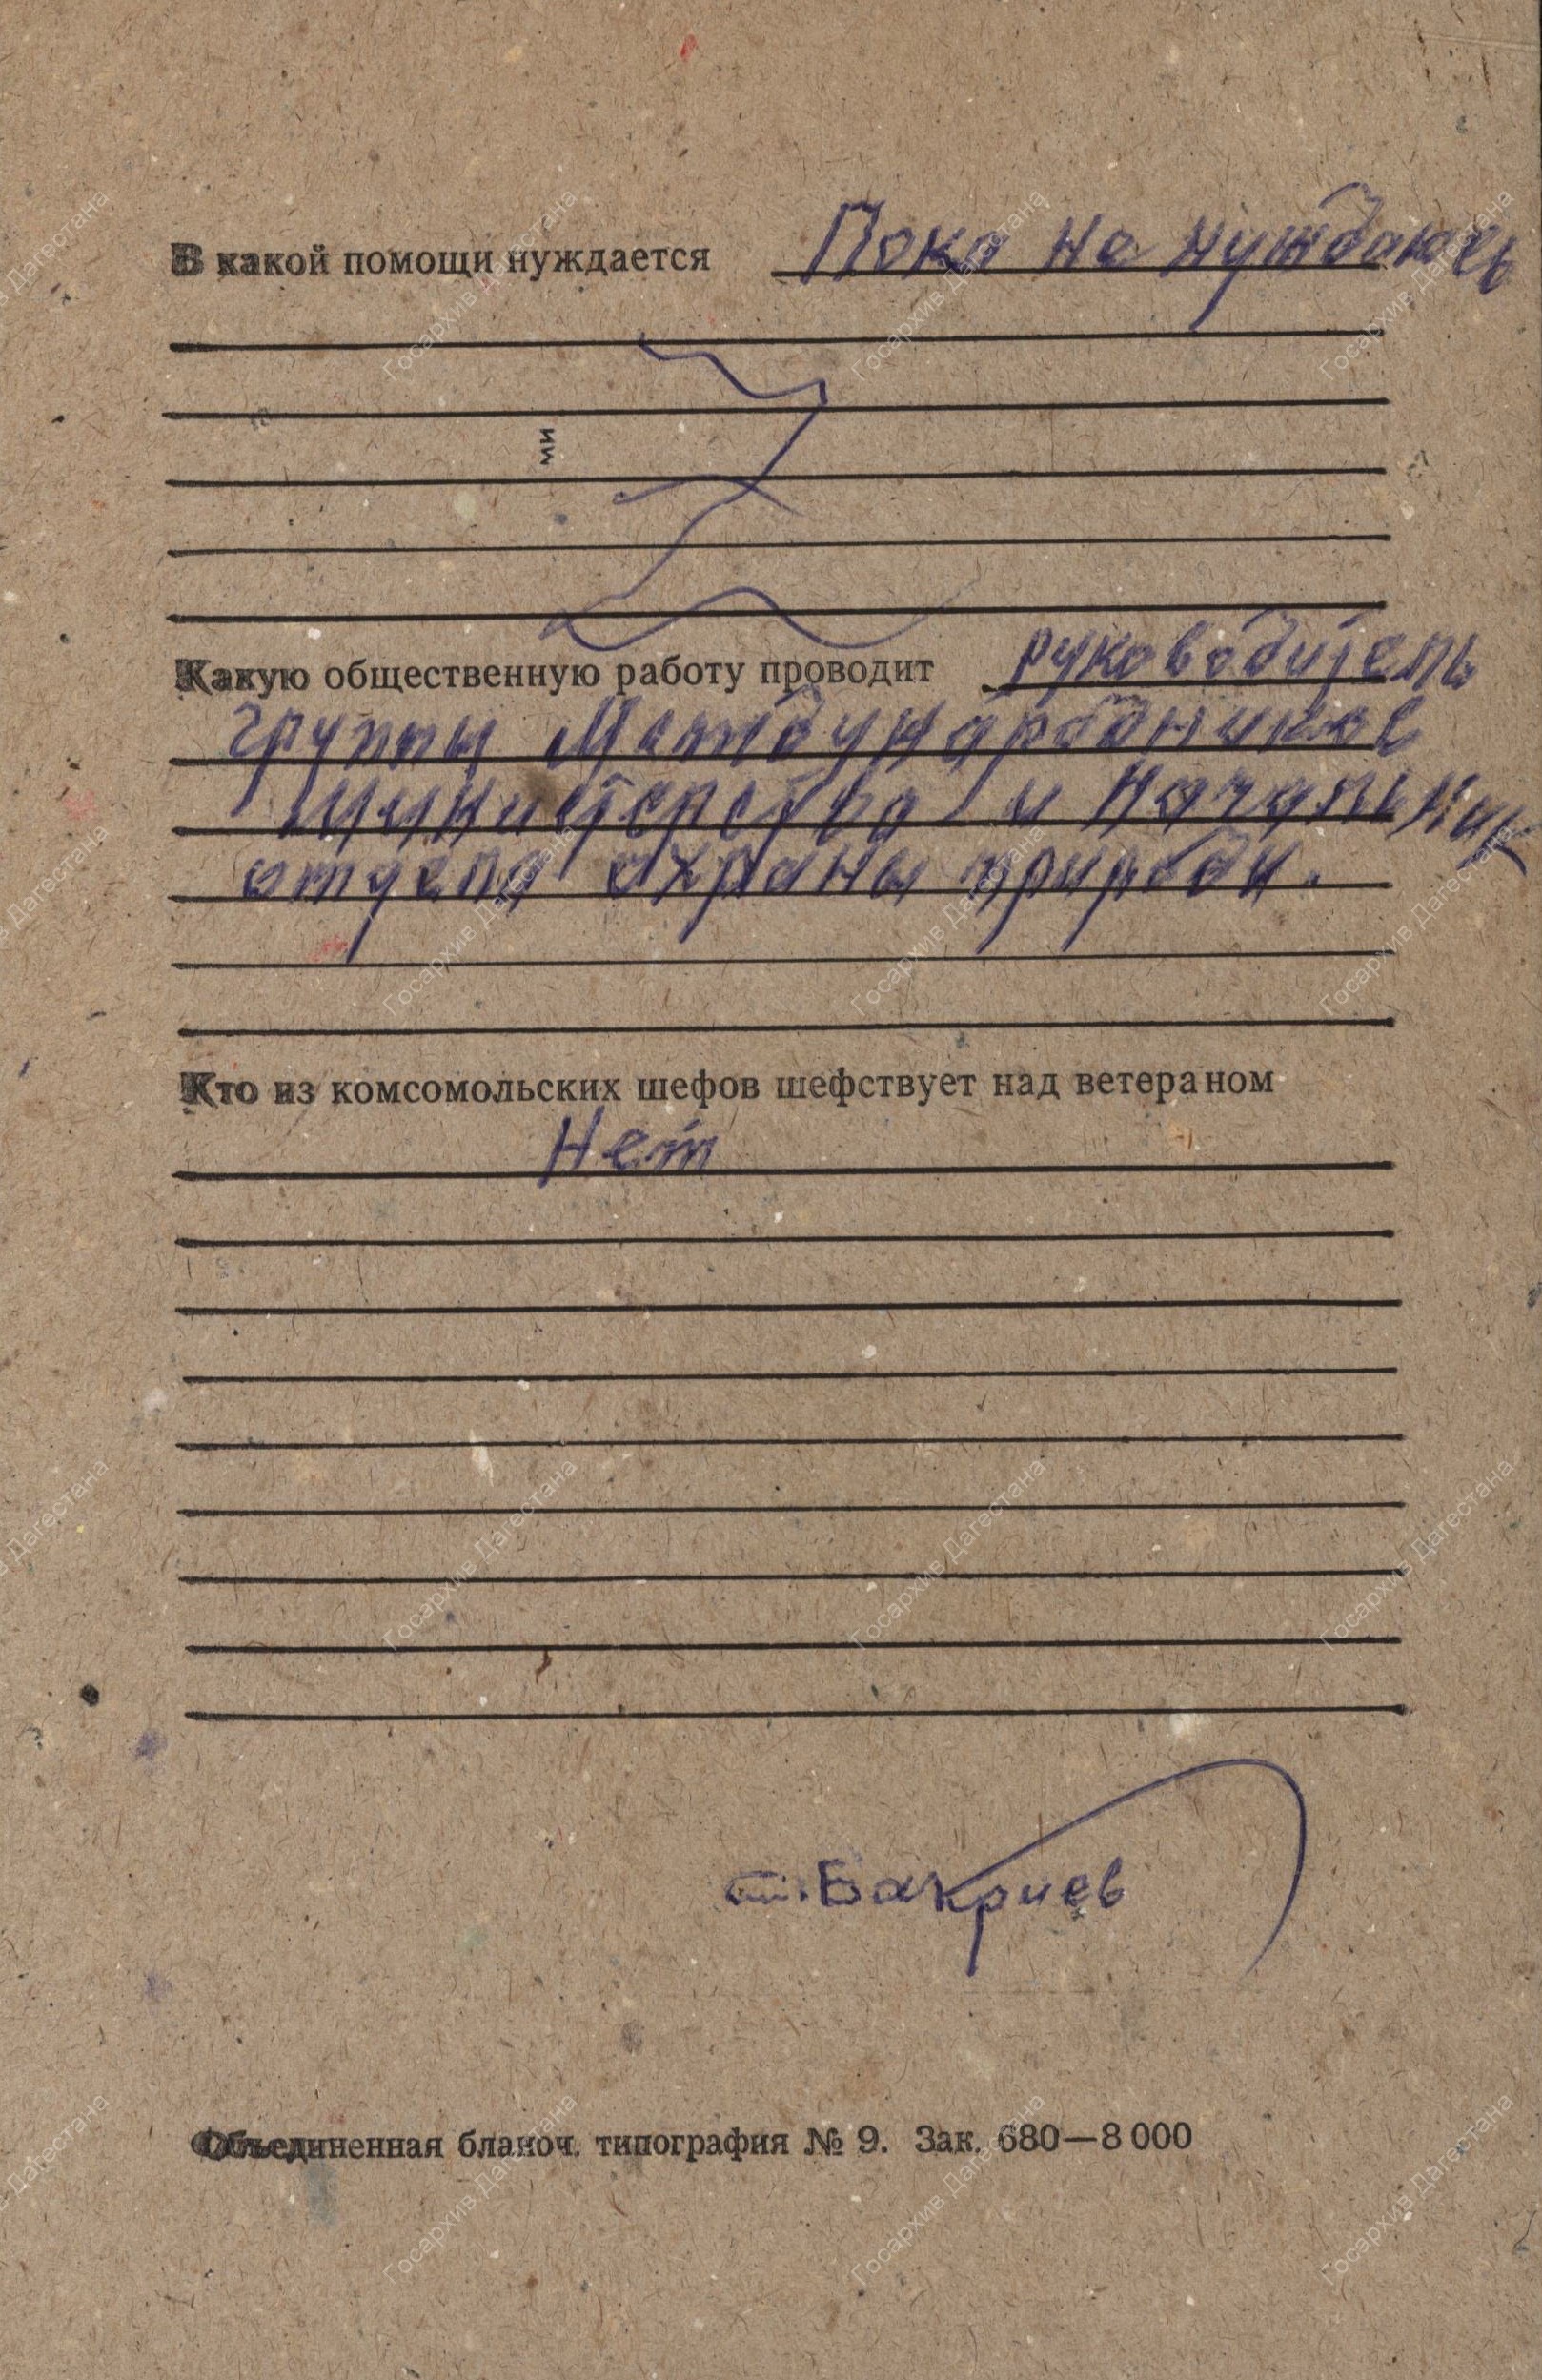 В какой помощи нуждается Пока не нуждаюсь
ми
Какую общественную работу проводит руководитель
группы Международников
министерства и начальник
отдела охраны природы.
Кто из комсомольских шефов шефствует над ветераном
Нет
Бакриев
Объединенная бланоч. типография № 9. Зак. 680—8 000
Госархив Дагестана